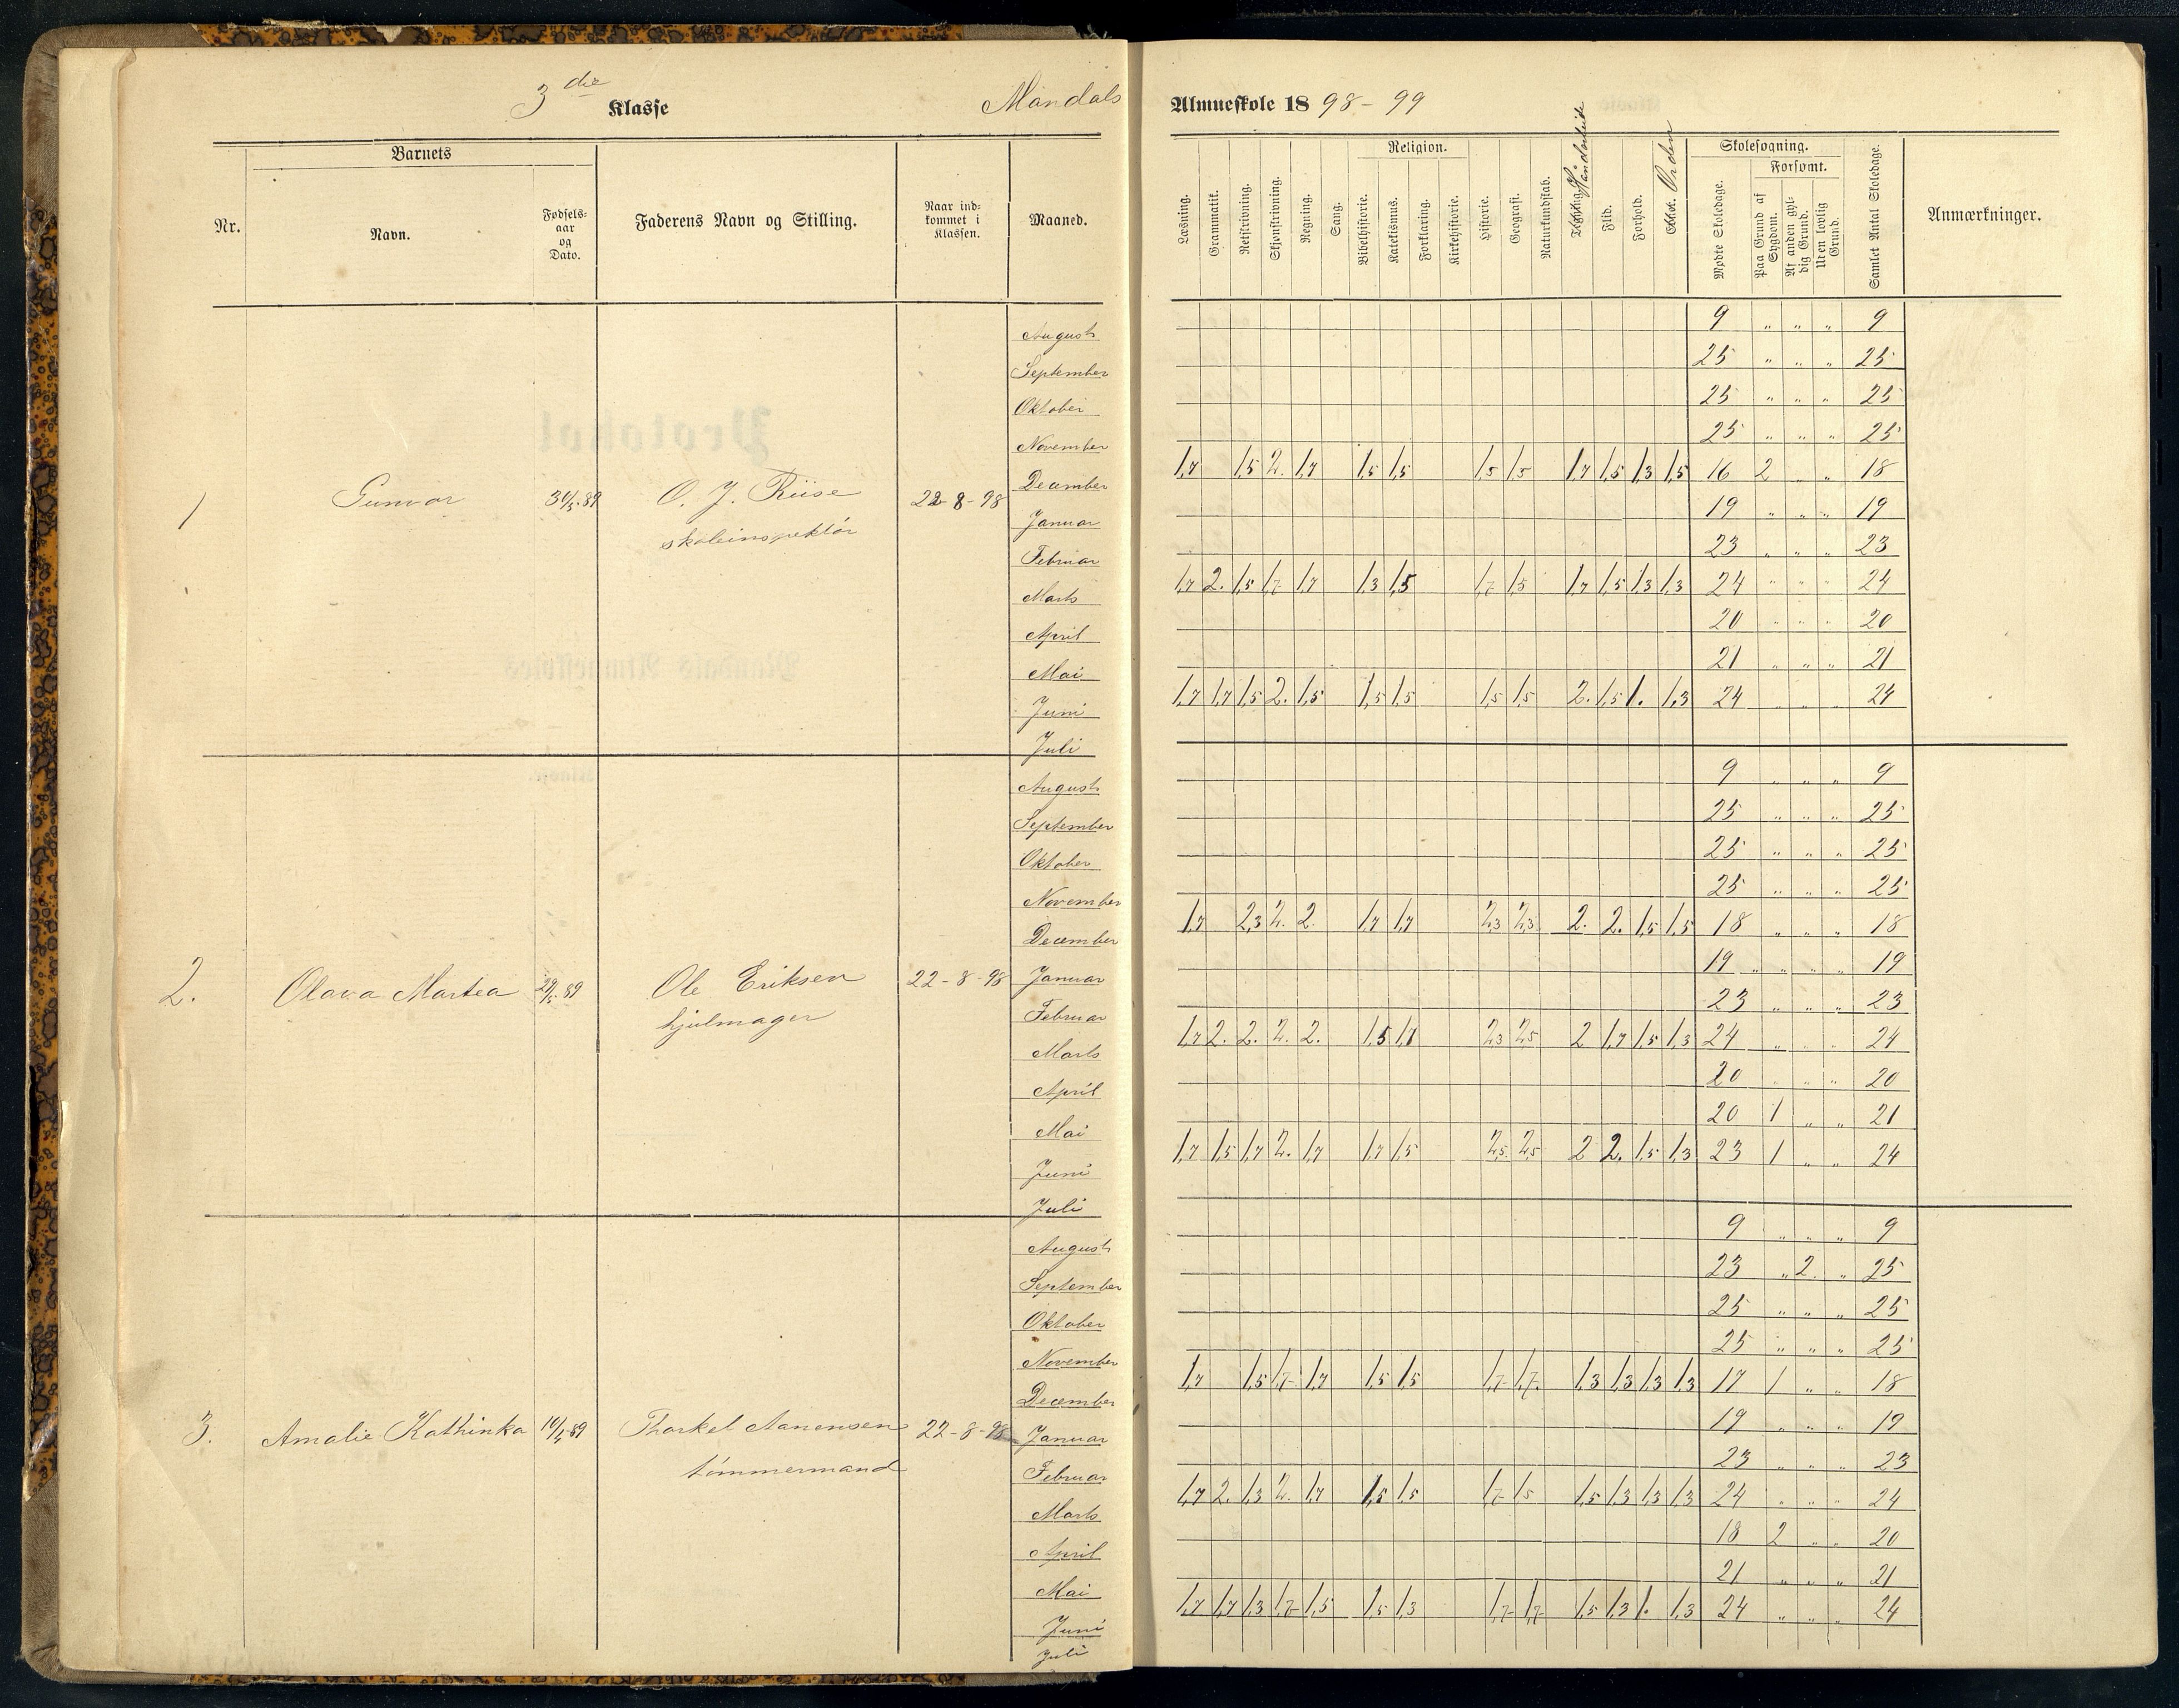 3die Klasse
Mandals
Almueskole 1898-99
Barnets
Nr.
Navn.
Fødsels-
aar
og
Dato.
Faderens Navn og Stilling.
Naar ind-
kommet i
Klassen.
Maaned.
Læsning.
Grammatik.
Retskrivning.
Skjønskrivning.
Regning.
Sang.
Religion.
Bibelhistorie.
Katekismus.
Forklaring.
Kirkehistorie.
Historie.
Geografi.
Naturkundskab.
Håndarbeide
Flid.
Forhold.
Orden
Skolesøgning.
Mødte Skoledage.
Forsømt.
Paa Grund af
Sygdom.
Af anden gyl-
dig Grund.
Uten lovlig
Grund.
Samlet Antal Skoledage.
Anmærkninger.
1 Gunvor 89 O. J. Riise 22-8-98
skoleinspektør
August 9 " " " 9
September 25 " " " 25
Oktober 25 " " " 25
November 25 " " " 25
December 1,7 1,5 2. 1,7 1,5 1,5 1,5 1,5 1,7 1,5 1,3 1,5 16 2 " " 18
Januar 19 " " " 19
Februar 23 " " " 23
Marts 1,7 2. 1,5 1,7 1,7 1,3 1,5 1,7 1,5 1,7 1,5 1,3 1,3 24 " " " 24
April 20 " " " 20
Mai 21 " " " 21
Juni 1,7 1,7 1,5 2. 1,5 1,5 1,5 1,5 1,5 2. 1,5 1. 1,3 24 " " " 24
Juli
2. Olava Martea 29/5.89 Ole Eriksen 22-8-98
hjulmager
August 9 " " " 9
September 25 " " " 25
Oktober 25 " " " 25
November 25 " " " 25
December 1,7 2,3 2. 2. 1,7 1,7 2,3 2,3 2. 2. 1,5 1,5 18 " " " 18
Januar 19 " " " 19
Februar 23 " " " 23
Marts 1,7 2. 2. 2. 2. 1,5 1,7 2,3 2,5 2 1,7 1,5 1,3 24 " " " 24
April 20 " " " 20
Mai 20 1 " " 21
Juni 1,7 1,5 1,7 2. 1,7 1,7 1,5 2,5 2,5 2 2. 1,5 1,3 23 1 " " 24
Juli
3. Amalie Kathinka 89 Thorkel Aanensen 22-8-98
tømmermand
August 9 " " " 9
September 23 " 2. " 25
Oktober 25 " " " 25
November 25 " " " 25
December 1,7 1,5 1,7 1,7 1,5 1,5 1,7 1,7 1,3 1,3 1,3 1,3 17 1 " " 18
Januar 19 " " " 19
Februar 23 " " " 23
Marts 1,7 2. 1,3 2. 1,7 1,5 1,5 1,7 1,5 1,5 1,3 1,3 1,3 24 " " " 24
April 18 2 " " 20
Mai 21 " " " 21
Juni 1,7 1,7 1,3 1,7 1,5 1,5 1,3 1,7 1,7 1,5 1,3 1. 1,3 24 " " " 24
Juli